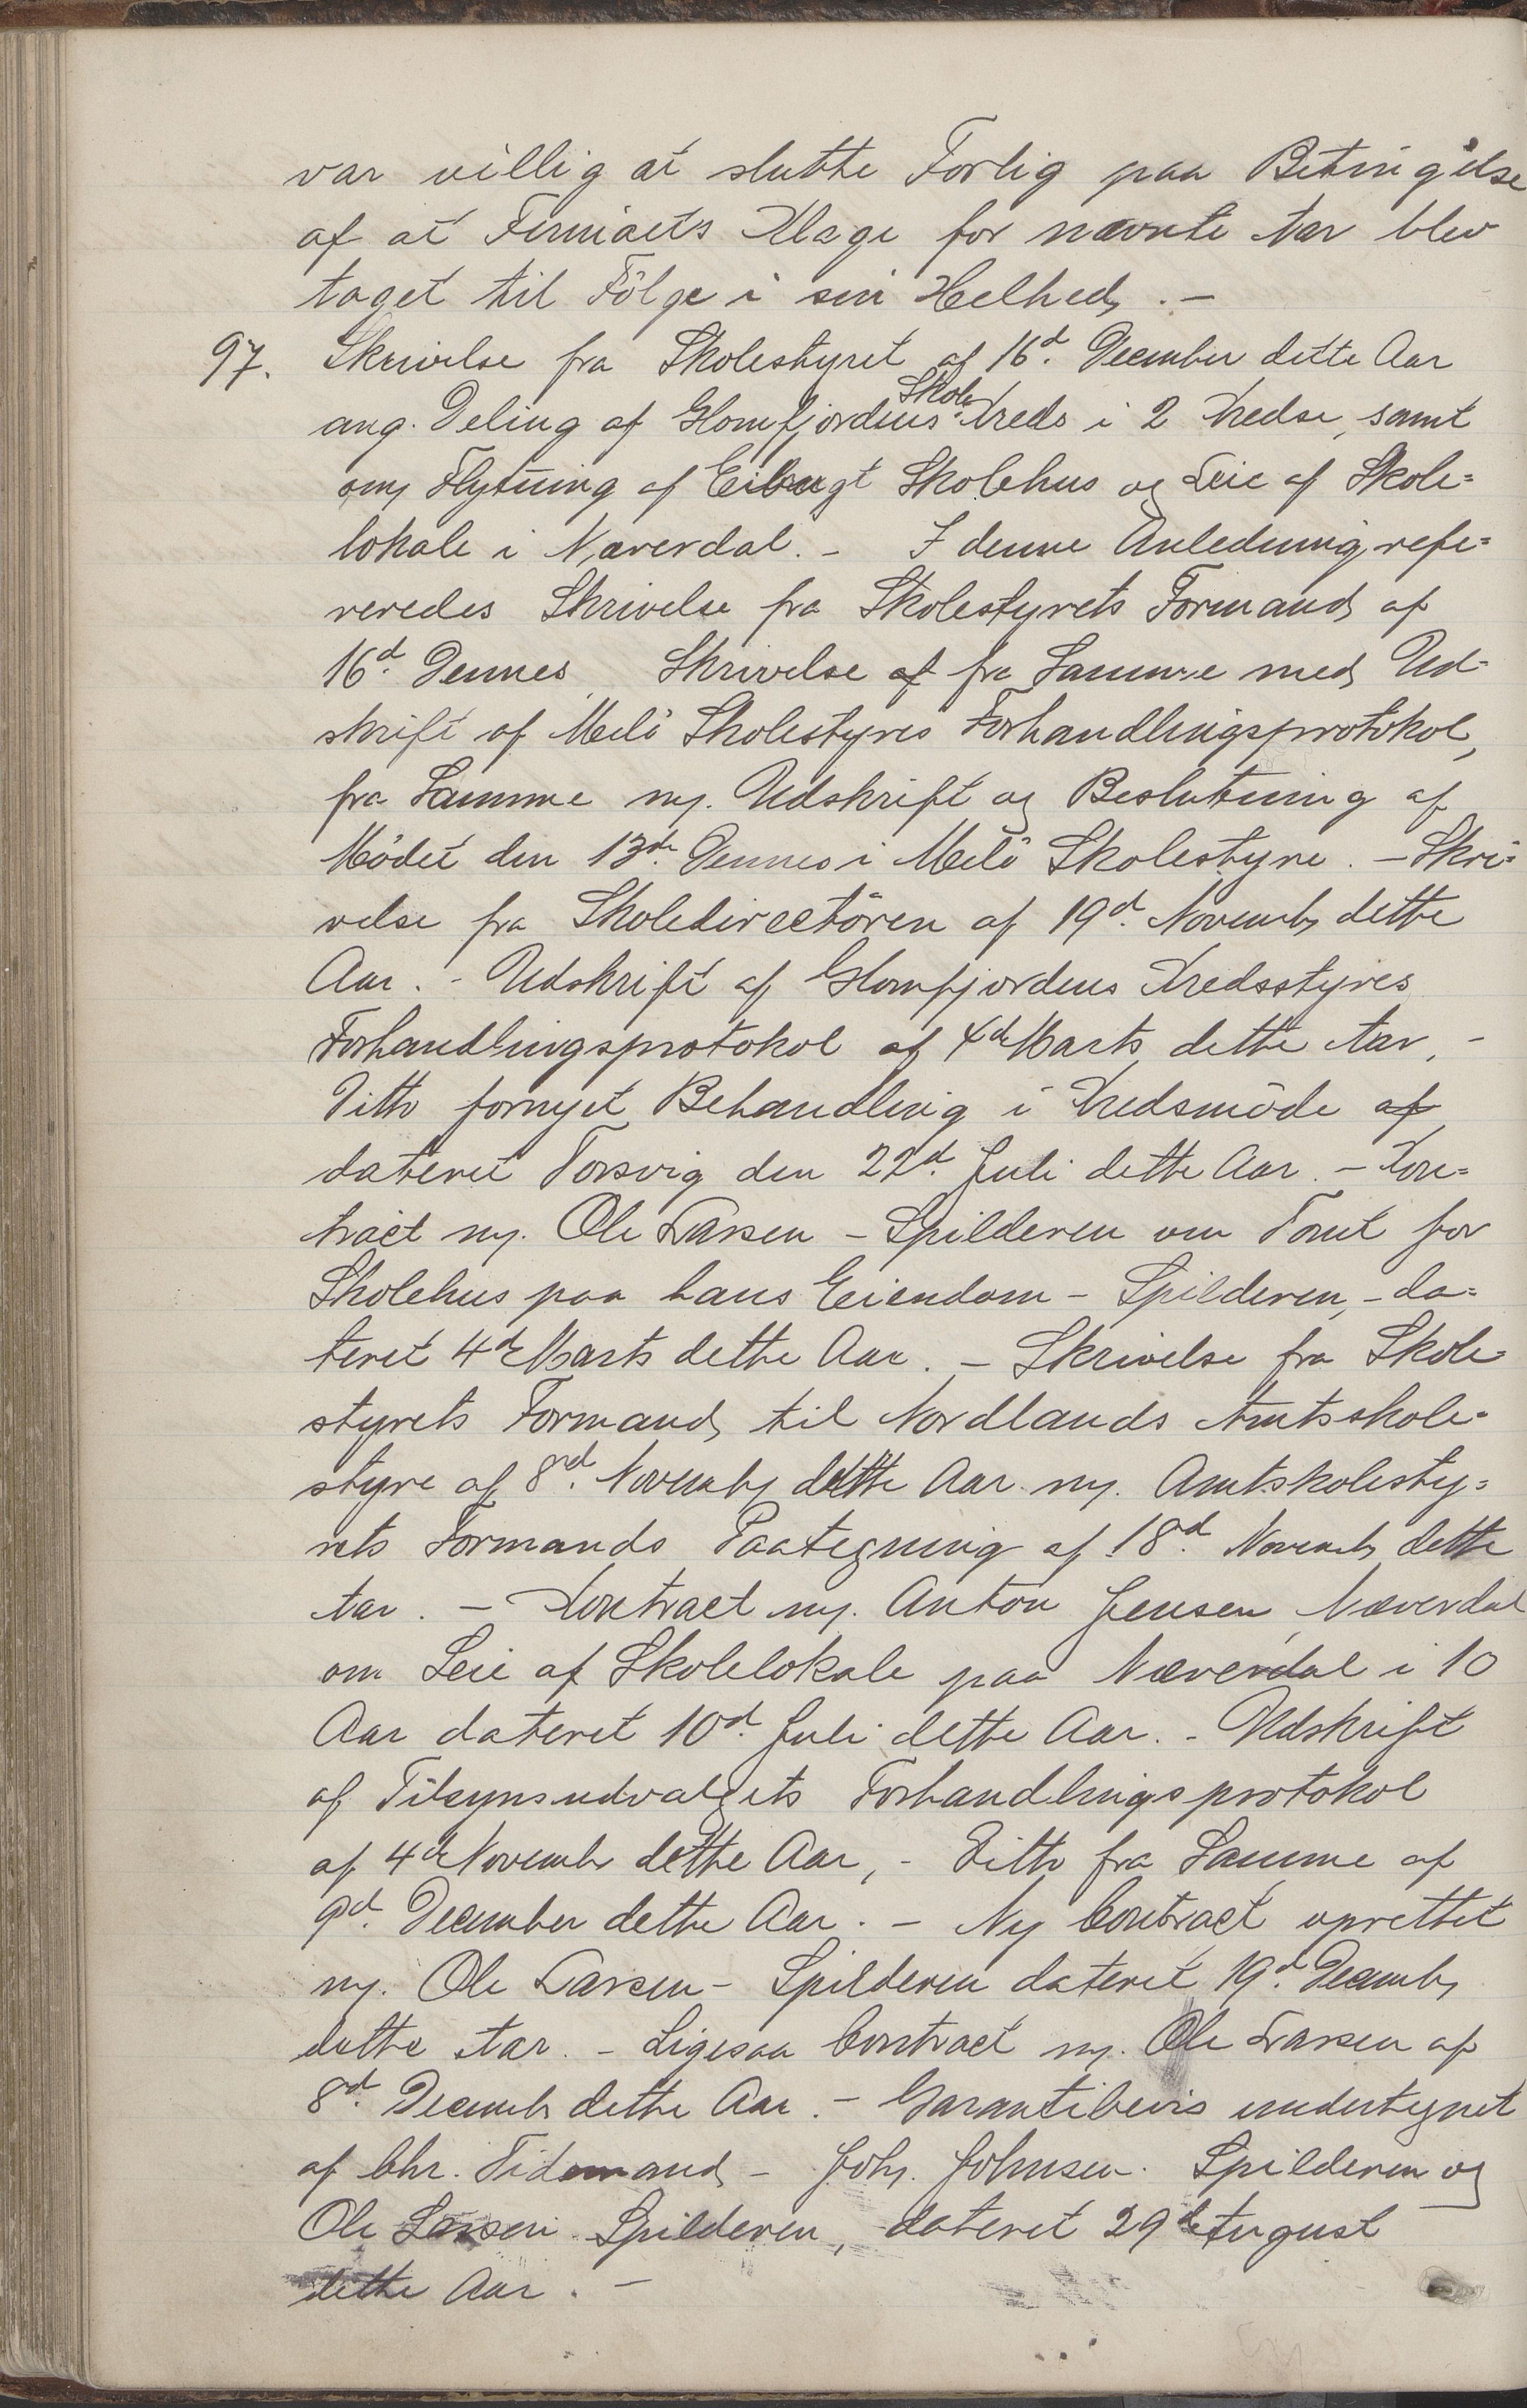 var villig at slutte Forlig paa Betingelse
af at Firmaets Klage for nævnte Aar blev
taget til Følge i sin Helhed. –
97. Skrivelse fra Skolestyret af 16d. December dette Aar
ang. Deling af Glomfjordens Skole-Kreds i 2 Kredse, samt
om Flytning af Eilbugt Skolehus og Leie af Skole=
lokale i Næverdal. – I denne Anledning refe=
reredes Skrivelse fra Skolestyrets Formand af
16d. Dennes Skrivelse af fra Samme med Ud=
skrift af Melö Skolestyres Forhandlingsprotokol,
fra Samme m. Udskrift og Beslutning af
Mödet den 13de. Dennes i Melö Skolestyre. – Skri=
velse fra Skoledirectören af 19d. Novemb. dette
Aar. – Udskrift af Glomfjordens Kredsstyres
Forhandlingsprotokol af 4de Marts dette Aar, –
Ditto fornyet Behandling i Kredsmöde af
dateret Torsvig den 22d. Juli dette Aar. – Kon=
tract m. Ole Larsen – Spilderen om Tomt for
Skolehus paa hans Eiendom – Spilderen, – da=
teret 4de Marts dette Aar. – Skrivelse fra Skole=
styrets Formand til Nordlands Amtsskole=
styre af 8d. Novemb. dette Aar m. Amtskolesty=
rets Formands Paategning af 18d. Novemb. dette
Aar. – Kontract m. Anton Jensen, Næverdal
om Leie af Skolelokale paa Næverdal i 10
Aar dateret 10d. Juli dette Aar. – Udskrift
af Tilsynsudvalgets Forhandlingsprotokol
af 4de Novemb. dette Aar, – Ditto fra Samme af
9d. December dette Aar. – Ny Contract oprettet
m. Ole Larsen – Spilderen dateret 19d. Decemb.
dette Aar. – Ligesaa Contract m. Ole Larsen af
8d. Decemb. dette Aar. – Garantibevis undertegnet
af Chr. Tidemand – Joh. Johnsen. Spilderen og
Ole Larsen Spilderen, dateret 29de August
dette Aar. –